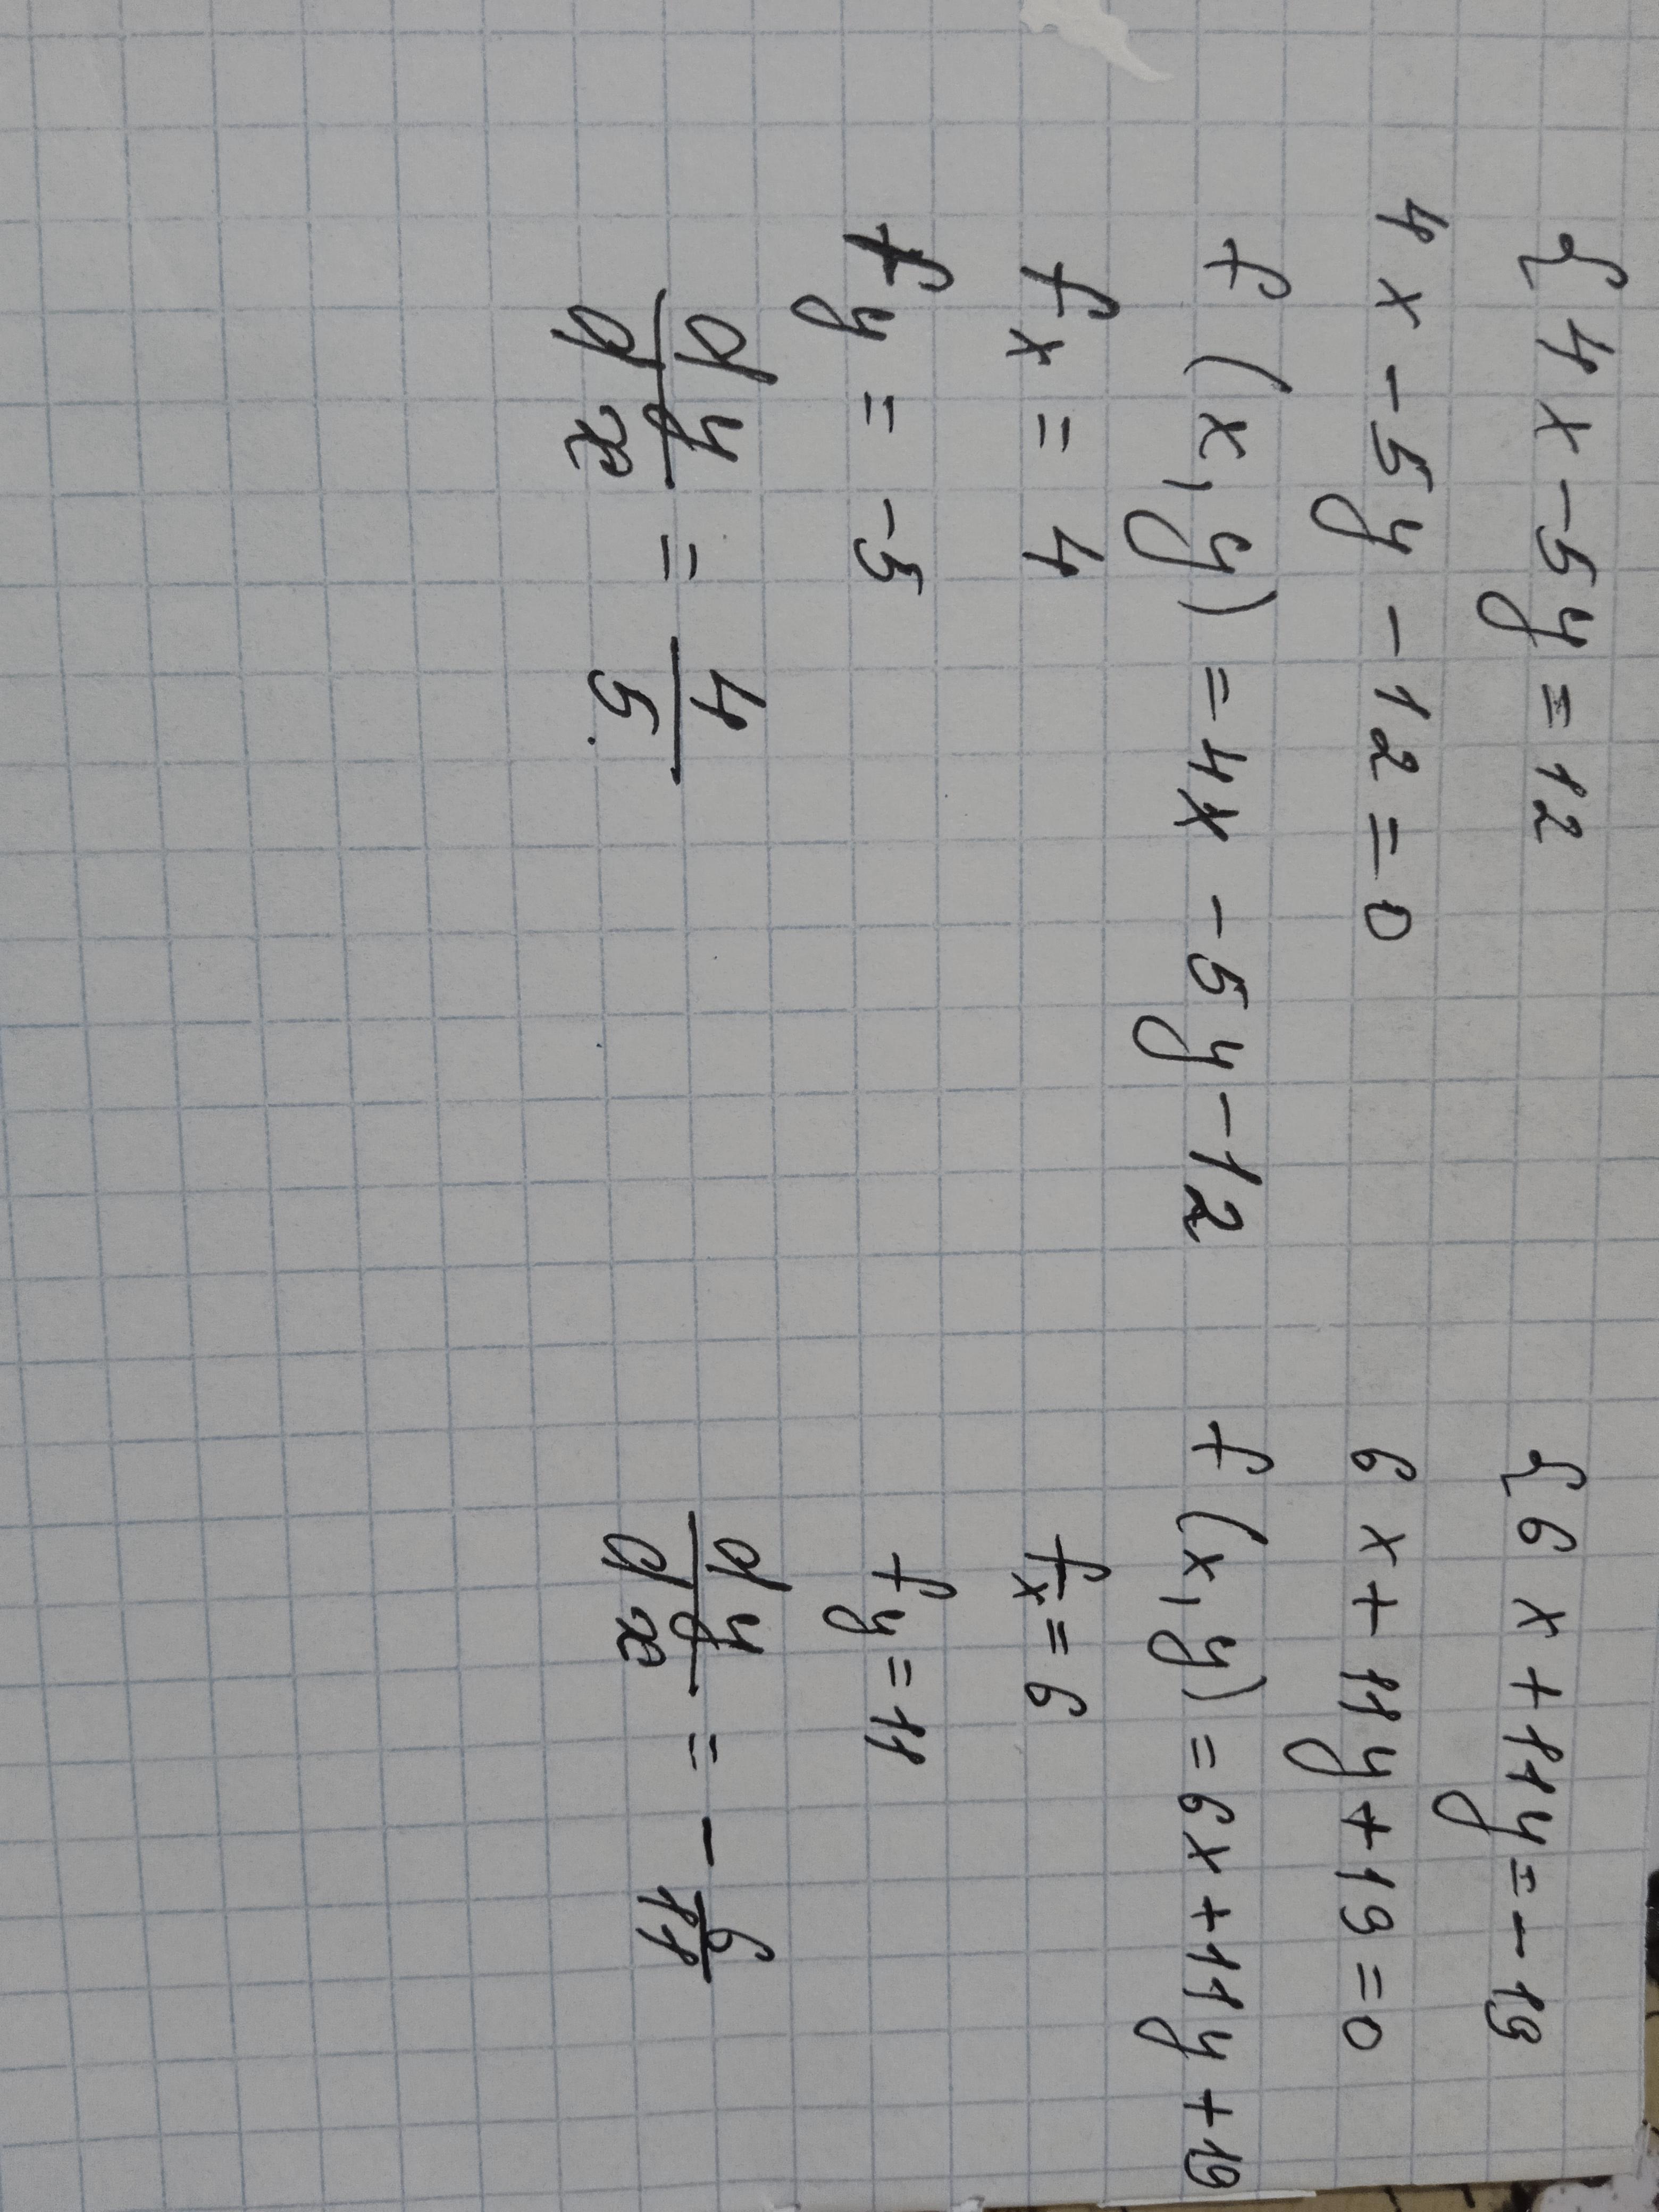 {4x-5y=12
4x-5y-12=0
f(x,y)=4x-5y-12
fx=4
fy=-5
dy/dx=4/5
{6x+11y=-19
6x+11y+19=0
f(x,y)=6x+11y+19
fx=6
fy=11
dy/dx=-6/11